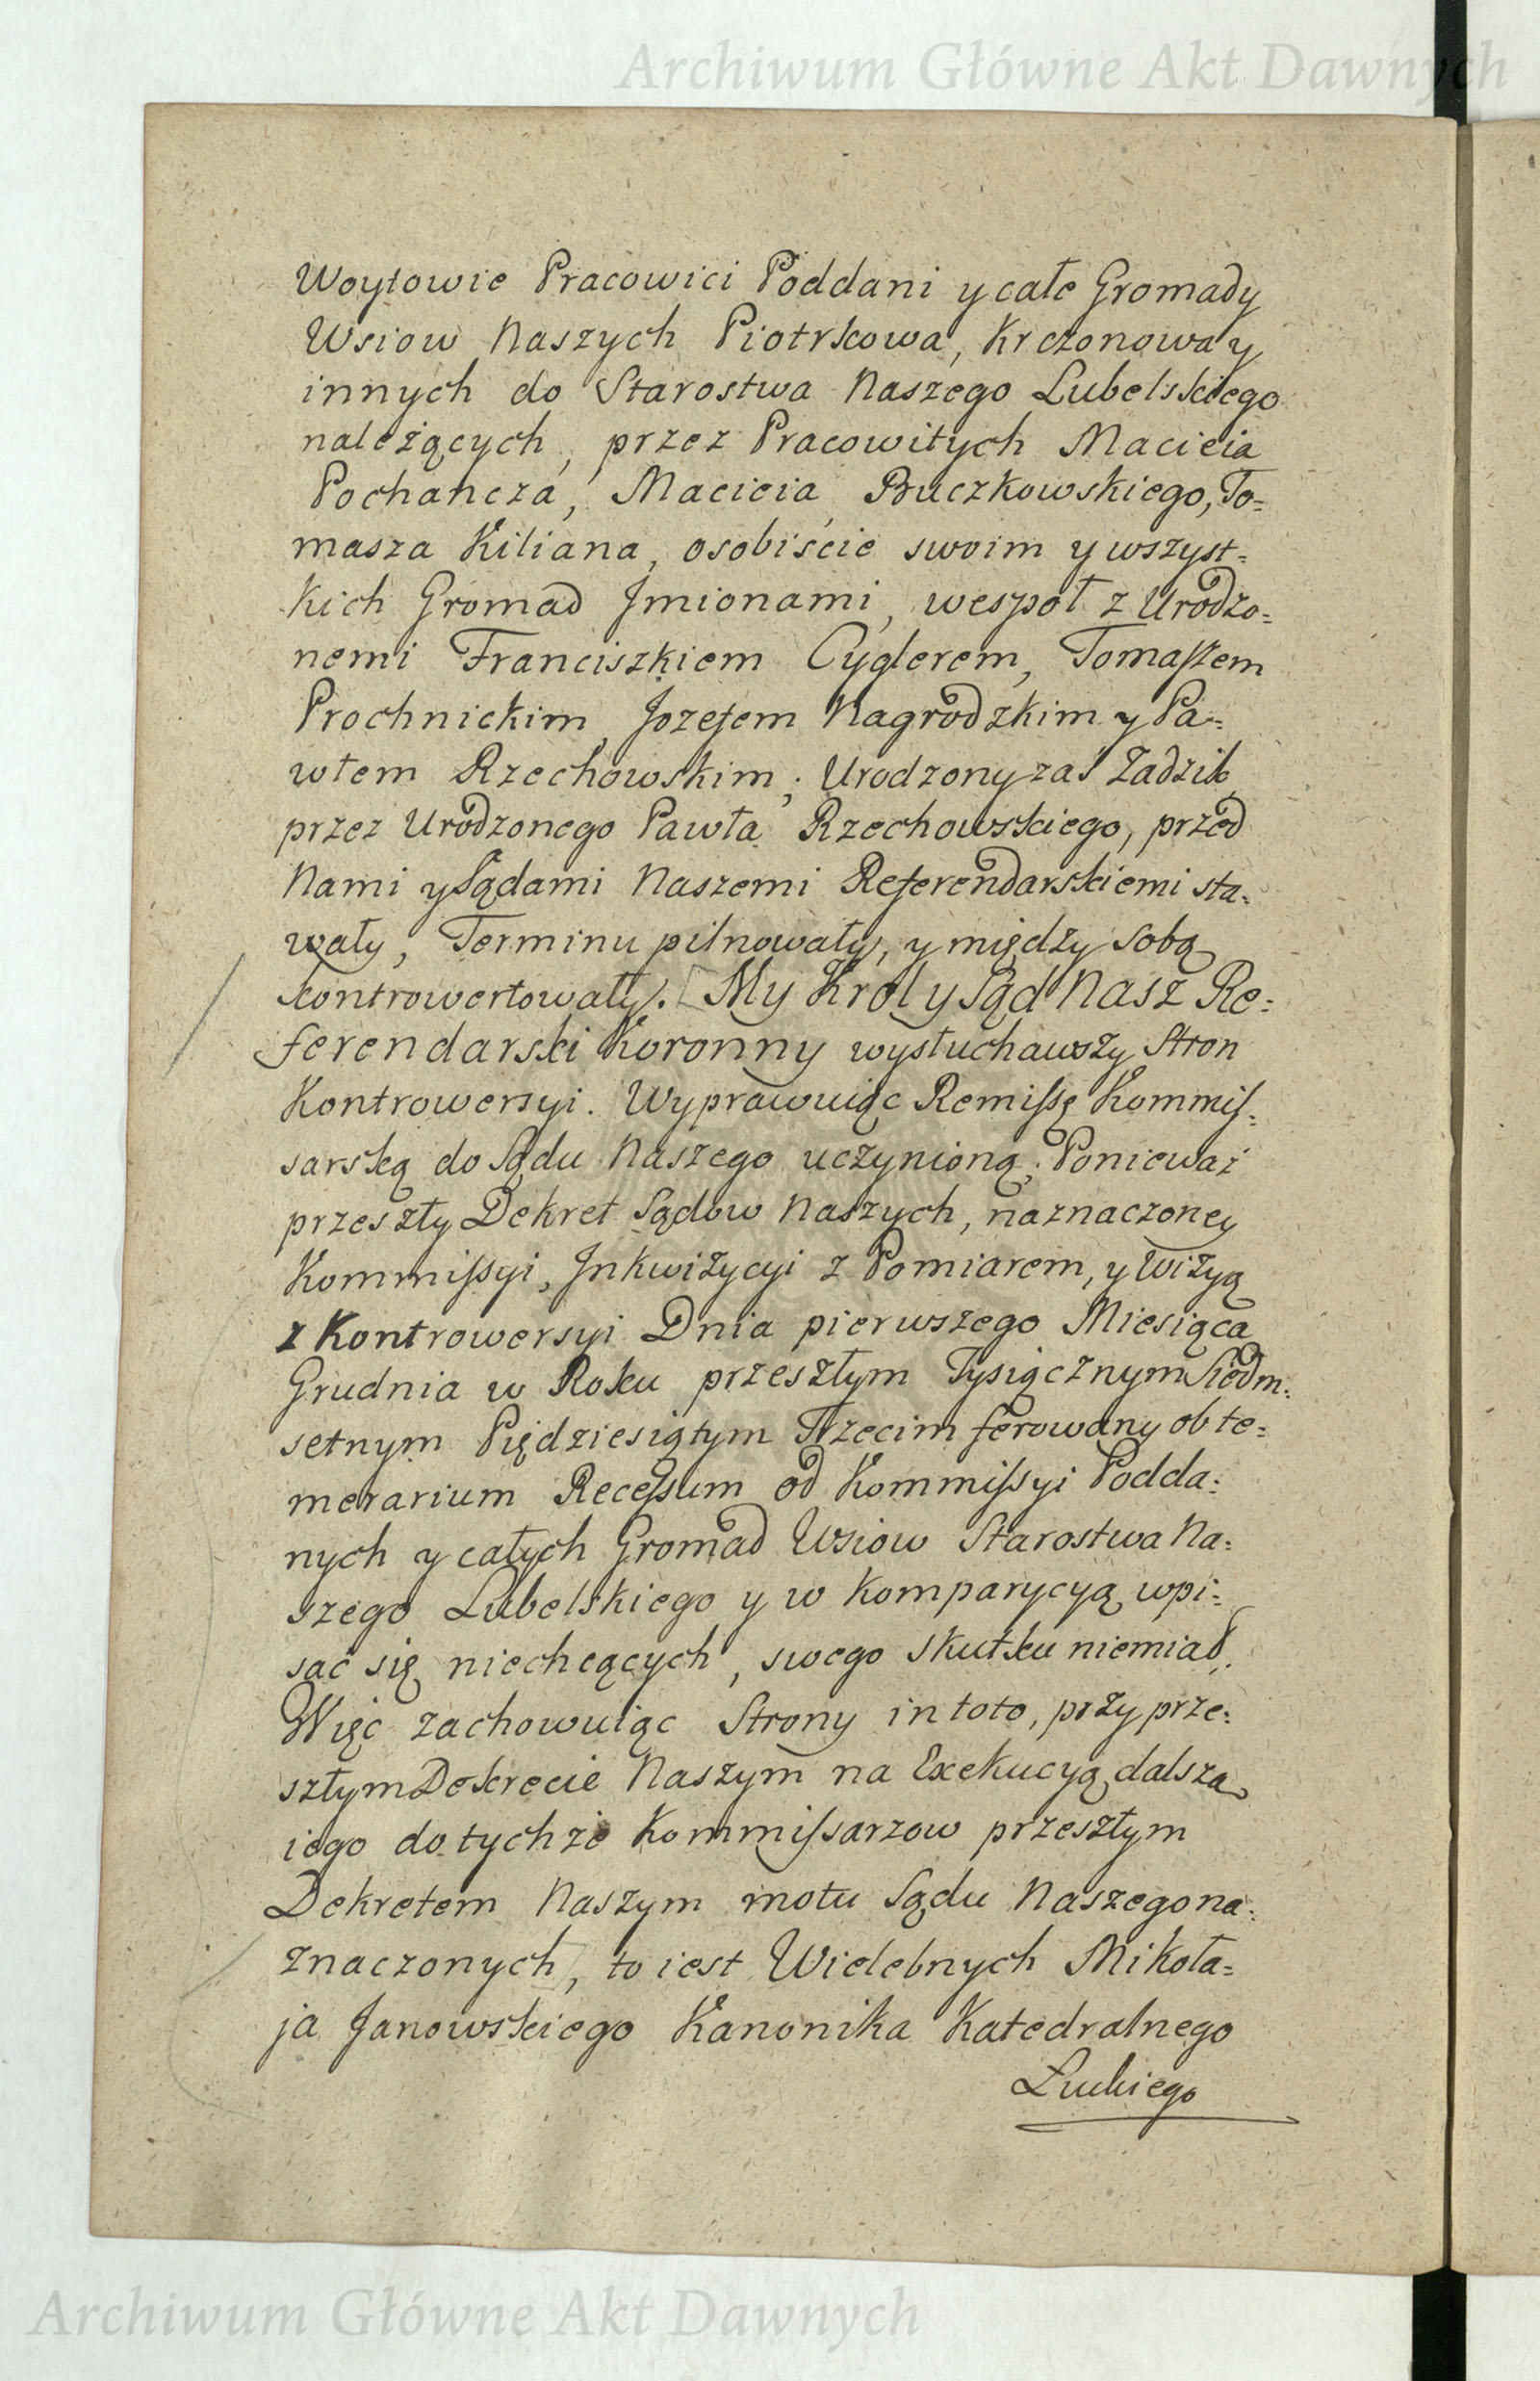 Archiwum Główne Akt Dawnych
Woytowie Pracowici Poddani y całe Gromady
Wsiow Naszych Piotrkowa, Krczonowa y
innych do Starostwa Naszego Lubelskiego
należących, przez Pracowitych Macieia
Pochańcza, Macieia Buczkowskiego, To=
masza Kiliana, osobiście swoim y wszyst=
kich Gromad Jmionami, wespoł z Urodzo=
nemi Franciszkiem Cyglerem, Tomaſzem
Prochnickim, Jozefem Nagrodzkim y Pa=
włem Rzechowskim; Urodzony zaś Zadzik
przez Urodzonego Pawła Rzechowskiego, przed
Nami y Sądami Naszemi Referendarskiemi sta=
wały, Terminu pilnowały, y między sobą
kontrowertowały. [My Krol y Sąd Nasz Re=
ferendarski Koronny wysłuchawszy Stron
Kontrowersyi. Wyprawuiąc Remiſsę Kommiſ=
sarską do Sądu Naszego uczynioną; Ponieważ
przeszły Dekret Sądow Naszych, naznaczoney
Kommiſsyi, Jnkwizycyi z Pomiarem, y Wizyą
z Kontrowersyi Dnia pierwszego Miesiąca
Grudnia w Roku przeszłym Tysiącznym Siedm=
setnym Piędziesiątym Trzecim ferowany ob te=
merarium Receſsum od Kommiſsyi Podda=
nych y całych Gromad Wsiow Starostwa Na=
szego Lubelskiego y w Komparycyą wpi=
sać się niechcących, swego skutku niemiał.
Więc zachowuiąc Strony in toto, przy prze=
szłym Dekrecie Naszym na Exekucyą dalszą
iego do tychże Kommiſsarzow przeszłym
Dekretem Naszym motu Sądu Naszego na=
znaczonych, to iest Wielebnych Mikoła=
ja Janowskiego Kanonika Katedralnego
Łuckiego
Archiwum Główne Akt Dawnych